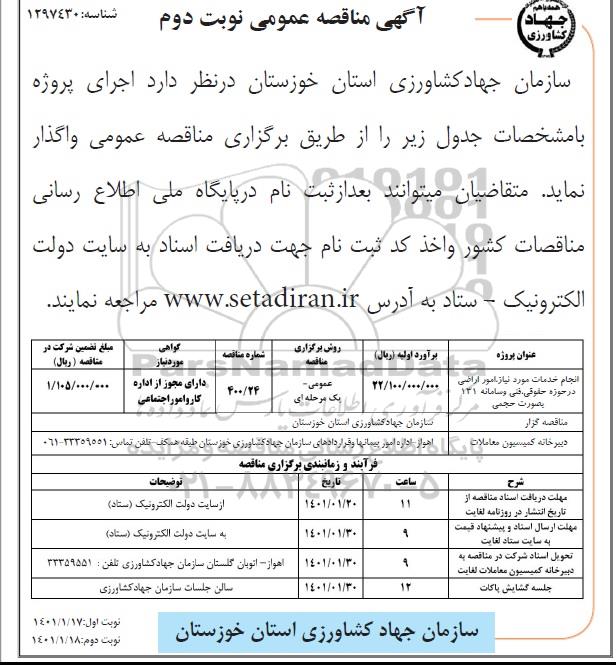 شناسه: ۱۲۹۷۴۳۰
آگهی مناقصه عمومی نوبت دوم
همه با هم
جهاد
کشاورزی
سازمان جهادکشاورزی استان خوزستان درنظر دارد اجرای پروژه
بامشخصات جدول زیر را از طریق برگزاری مناقصه عمومی واگذار
نماید. متقاضیان میتوانند بعدازثبت نام درپایگاه ملی اطلاع رسانی
مناقصات کشور واخذ کد ثبت نام جهت دریافت اسناد به سایت دولت
الکترونیک – ستاد به آدرس www.setadiran.ir مراجعه نمایند.
عنوان پروژه برآورد اولیه (ریال) روش برگزاری مناقصه شماره مناقصه گواهی موردنیاز مبلغ تضمین شرکت در مناقصه (ریال)
انجام خدمات مورد نیاز،امور اراضی درحوزه حقوقی،فنی وسامانه ۱۳۱ بصورت حجمی ۲۲/۱۰۰/۰۰۰/۰۰۰ عمومی- یک مرحله ای ۴۰۰/۲۴ دارای مجوز از اداره کارواموراجتماعی ۱/۱۰۵/۰۰۰/۰۰۰
مناقصه گزار سازمان جهادکشاورزی استان خوزستان
دبیرخانه کمیسیون معاملات اهواز-اداره امور پیمانها وقراردادهای سازمان جهادکشاورزی خوزستان طبقه همکف-تلفن تماس: ۳۳۳۵۹۵۵۱-۰۶۱
فرآیند و زمانبندی برگزاری مناقصه
شرح ساعت تاریخ توضیحات
مهلت دریافت اسناد مناقصه از تاریخ انتشار در روزنامه لغایت ۱۱ ۱۴۰۱/۰۱/۲۰ ازسایت دولت الکترونیک (ستاد)
مهلت ارسال اسناد و پیشنهاد قیمت به سایت ستاد لغایت ۹ ۱۴۰۱/۰۱/۳۰ به سایت دولت الکترونیک (ستاد)
تحویل اسناد شرکت در مناقصه به دبیرخانه کمیسیون معاملات لغایت ۹ ۱۴۰۱/۰۱/۳۰ اهواز- اتوبان گلستان سازمان جهادکشاورزی تلفن : ۳۳۳۵۹۵۵۱
جلسه گشایش پاکات ۱۲ ۱۴۰۱/۰۱/۳۰ سالن جلسات سازمان جهادکشاورزی
ParsNamadData
۰۲۱-۸۸۳۴۹۶۷۰-۵
نوبت اول:۱۴۰۱/۱/۱۷
نوبت دوم:۱۴۰۱/۱/۱۸
سازمان جهاد کشاورزی استان خوزستان